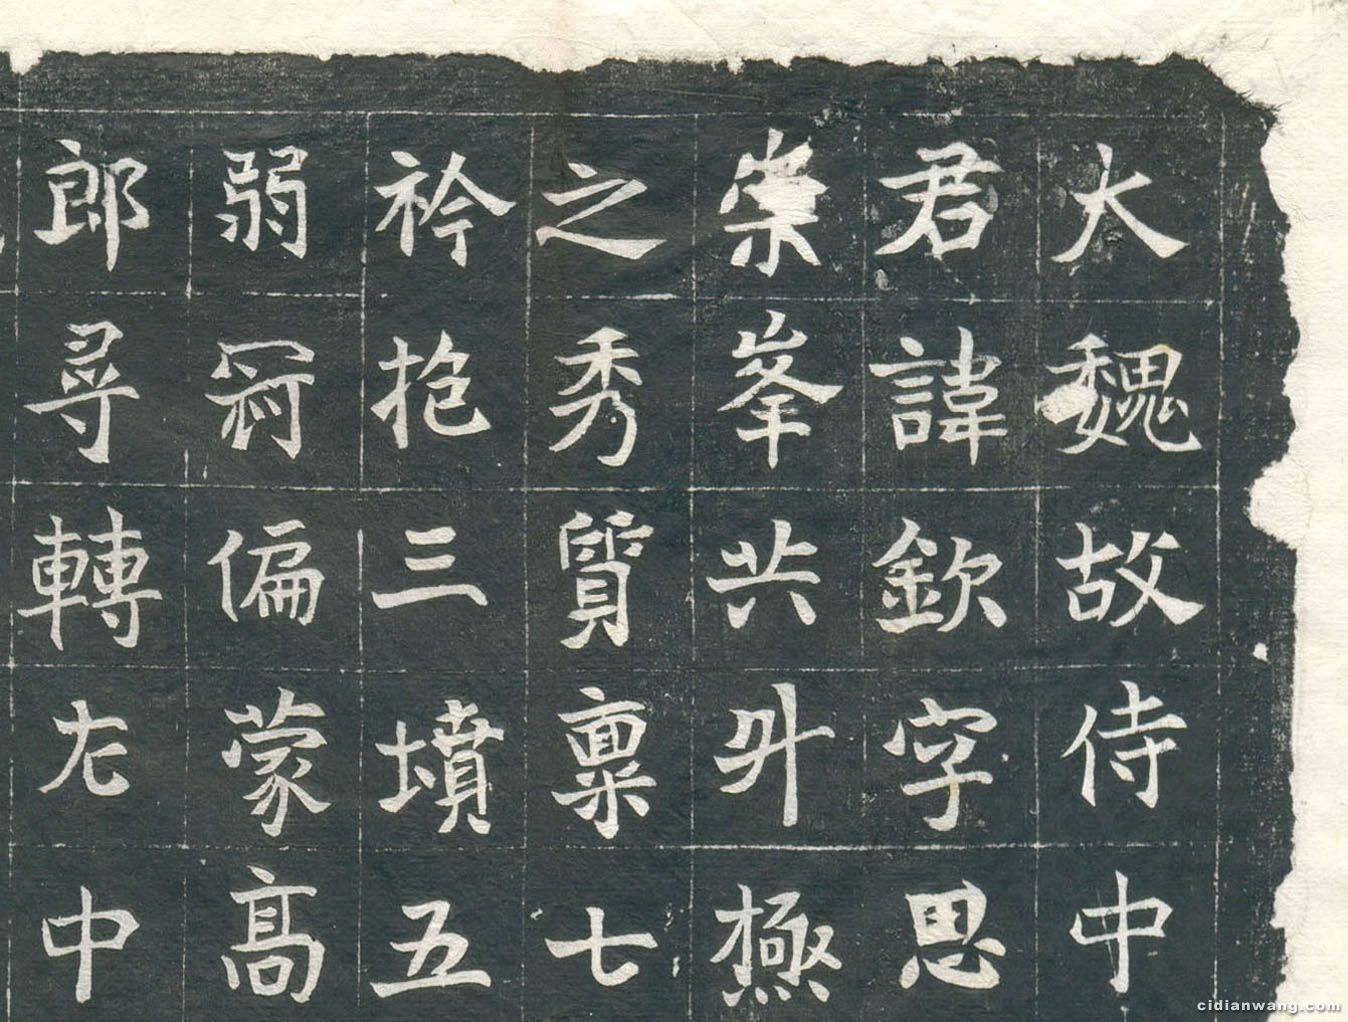 大魏故侍中
君諱欽字思
崇峯共升極
之秀質稟七
衿抱三墳五
弱冠偏蒙高
郎尋轉左中
cidianwang.com